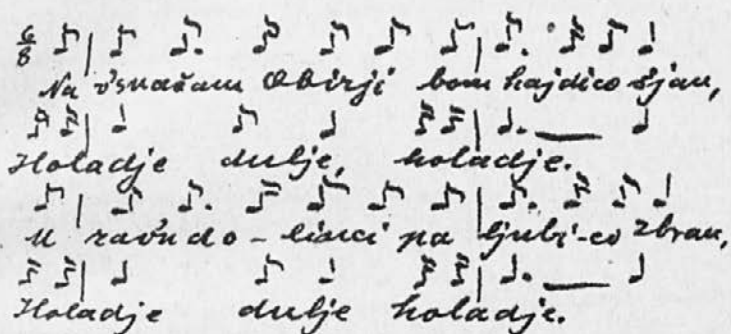 6/8
Na vsnašam Obirji bom hajdico sjau,
Holadje dulje, holadje.
U ravndo-linci pa ljubi-co zbrau,
Holadje dulje holadje.